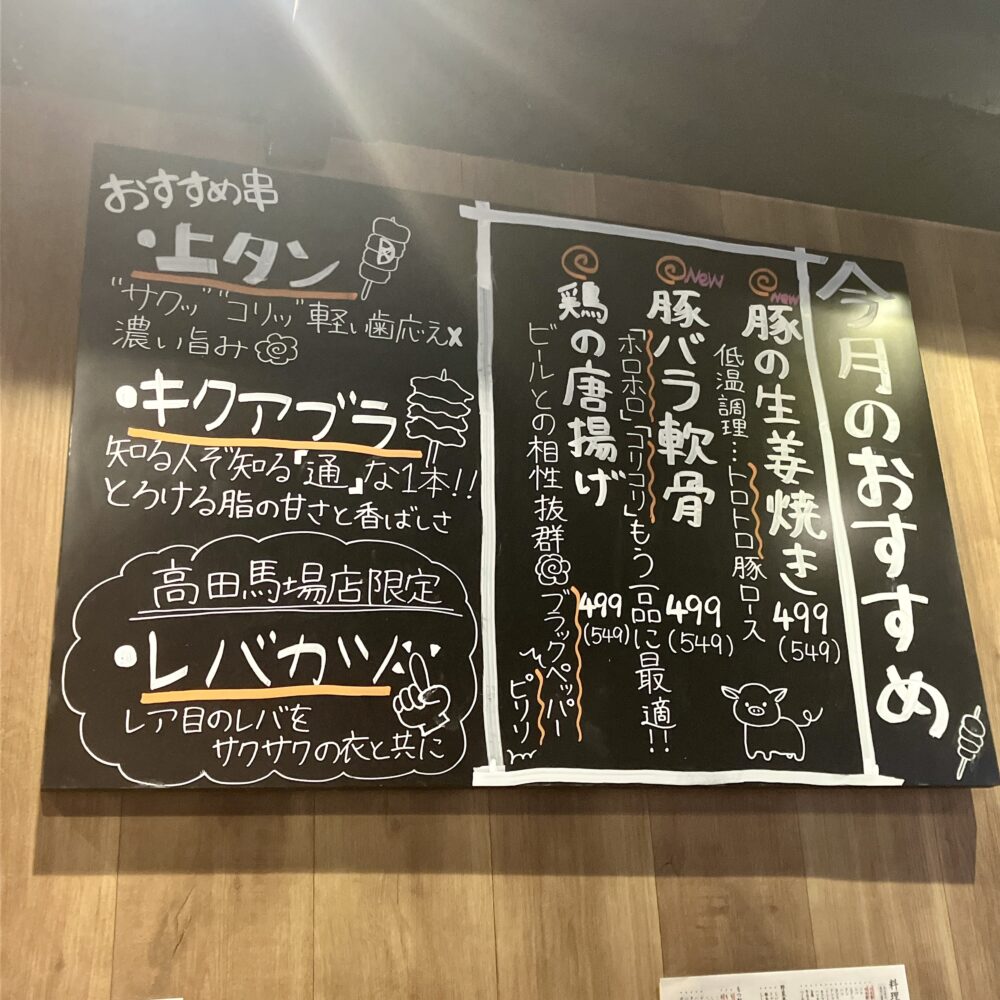 今月のおすすめ
New
豚の生姜焼き
499
(549)
低温調理…トロトロ豚ロース
New
豚バラ軟骨
499
(549)
「ホロホロ」「コリコリ」もう一品に最適!!
鶏の唐揚げ
499
(549)
ビールとの相性抜群
ブラックペッパー
でピリリ
おすすめ串
・上タン
"サクッ" "コリッ" 軽い歯応え×
濃い旨み
・キクアブラ
知る人ぞ知る『通』な1本!!
とろける脂の甘さと香ばしさ
高田馬場店限定
・レバカツ
レア目のレバを
サクサクの衣と共に
料理